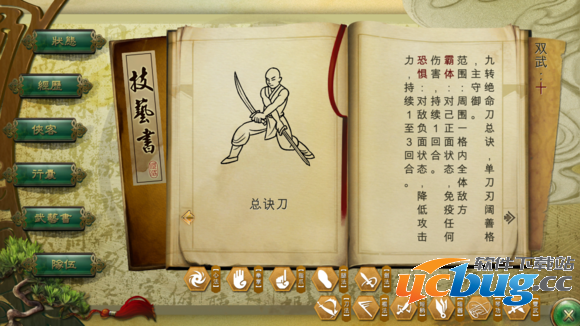 狀態
經歷
俠客
行囊
武藝書
隊伍
技藝書
总诀刀
双武：十
九转绝命刀总诀，单刀刃阔善格
，主守御。
范围：周围一格内全体敌方
霸体：对己正面状态，免疫任何
伤害，持续1回合。
恐惧：对敌负面状态，降低攻击
力，持续1至3回合。
软件下载站
ucbug.cc